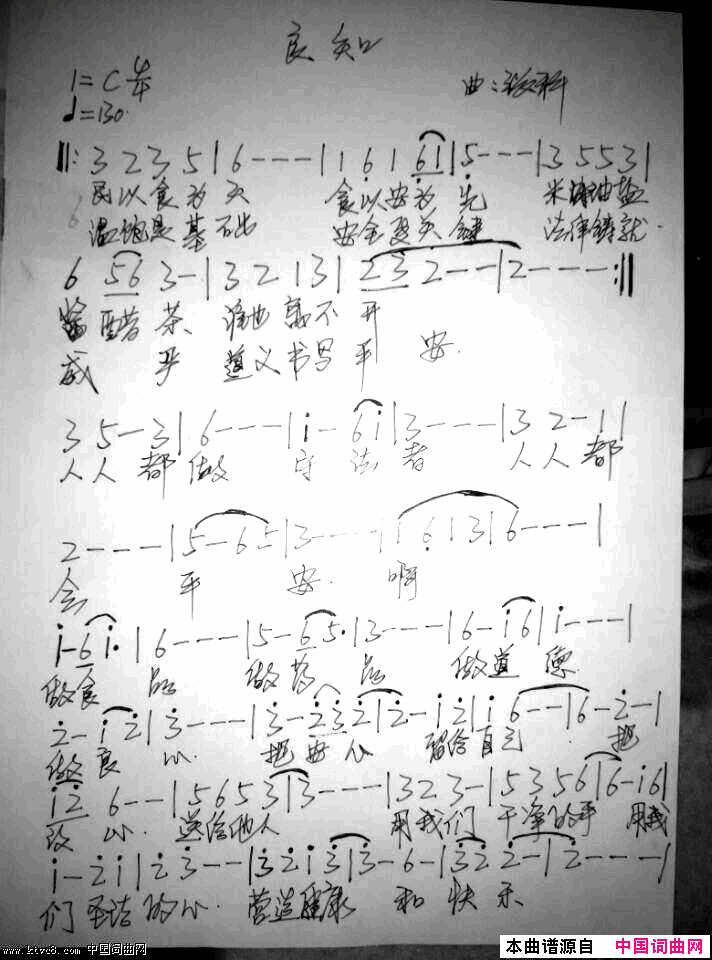 良知
1=C 4/4
♩=130
曲:
‖: 3 2 3 5 | 6 - - - | 1 6 1 6 1 | 5 - - - | 3 5 5 3 |
民以食为天 食以安为先 米 油盐
温饱是基础 安全是关键 法律铸就
6 5 6 3 - | 3 2 1 3 | 2 3 2 - - | 2 - - - :‖
酱醋茶 谁也离不开
威严 道义书写平安
3 5 - 3 | 6 - - - | i - 6 i | 3 - - - | 3 2 - 1 |
人人都做守法者 人人都
2 - - - | 5 - 6 5 | 3 - - - | 1 6 1 3 | 6 - - - |
会平安 啊
i - 6 i · | 6 - - - | 5 - 6 5 · | 3 - - - | 6 - i 6 | i - - - |
做食品 做药品 做道德
2 - i 2 | 3 - - - | 3 - 2 3 2 | 2 - i 2 | i 6 - - | 6 - 2 - |
做良心 把安心 留给自己 把
i 2 6 - - | 5 6 5 3 | 3 - - - | 3 2 3 - | 5 3 5 6 | 6 - i 6 |
放心 送给他人 用我们 干净的手 用我
i - 2 i | 2 3 - - | 3 2 i 3 | 3 - 6 - | 3 2 2 - | 2 - - - |
们圣洁的心 营造健康 和快乐
www.ktvc8.com 中国词曲网
本曲谱源自 中国词曲网